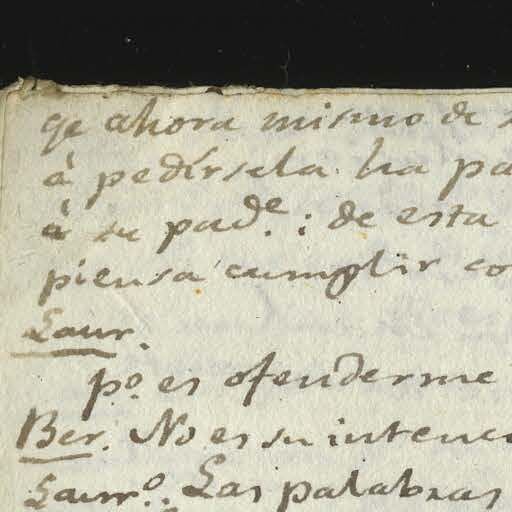 qe ahora mismo de
à pedírsela ha pa
à su pad.e : de esta
piensa cumplir co
Laur.
p.o es ofenderme
Ber. No es su intenc
Laur.o. Las palabras